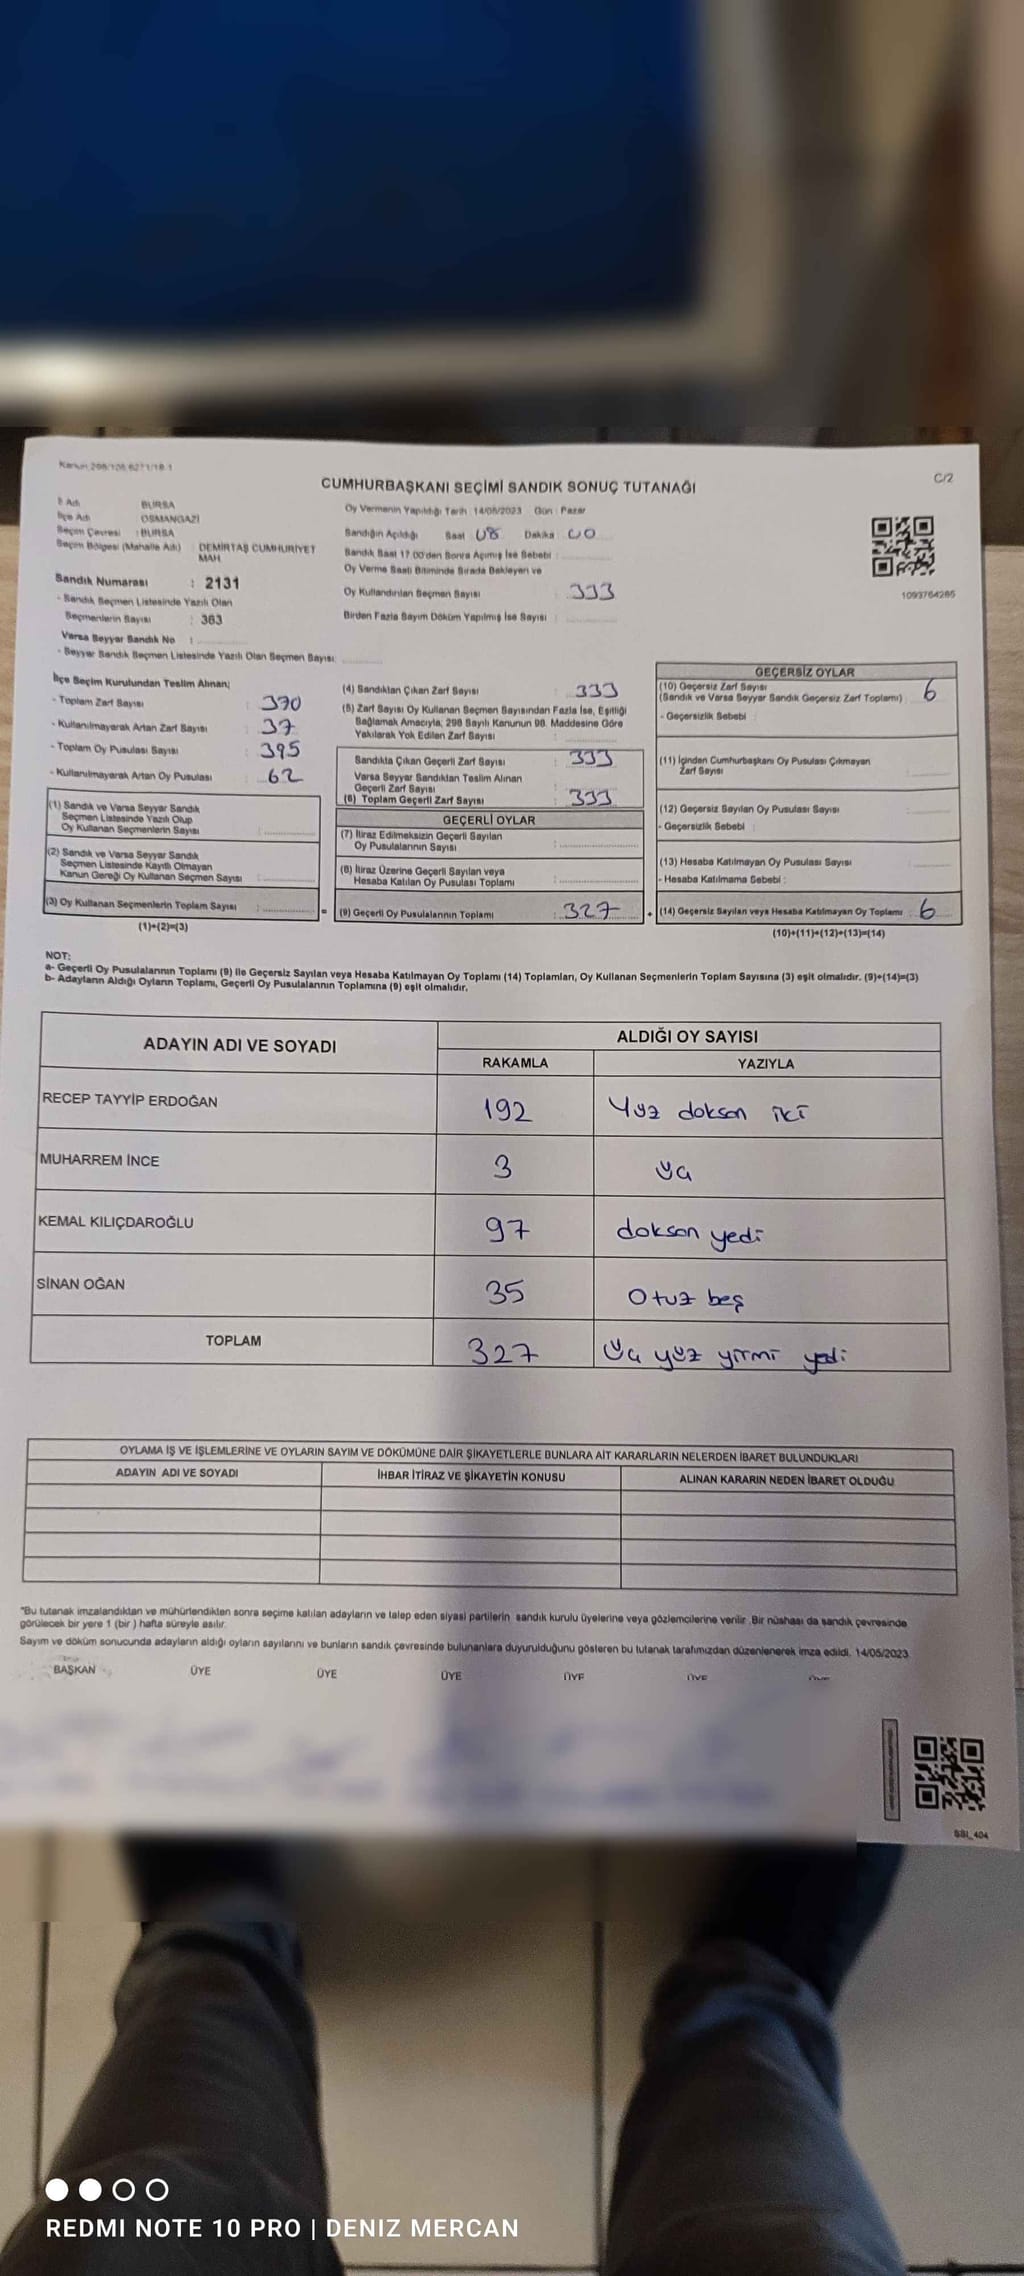 Kanun 298/105 6271/19.1
C/2
CUMHURBAŞKANI SEÇİMİ SANDIK SONUÇ TUTANAĞI
İl Adı BURSA
İlçe Adı OSMANGAZİ
Seçim Çevresi : BURSA
Seçim Bölgesi (Mahalle Adı) : DEMİRTAŞ CUMHURİYET MAH.
Sandık Numarası : 2131
- Sandık Seçmen Listesinde Yazılı Olan
Seçmenlerin Sayısı : 363
Varsa Seyyar Sandık No :
- Seyyar Sandık Seçmen Listesinde Yazılı Olan Seçmen Sayısı:
Oy Vermenin Yapıldığı Tarih : 14/05/2023 Gün : Pazar
Sandığın Açıldığı Saat 08 Dakika 00
Sandık Saat 17.00'den Sonra Açımış İse Sebebi :
Oy Verme Saati Bitiminde Sırada Bekleyen ve
Oy Kullandırılan Seçmen Sayısı : 333
Birden Fazla Sayım Döküm Yapılmış İse Sayısı :
1093764265
İlçe Seçim Kurulundan Teslim Alınan;
- Toplam Zarf Sayısı : 370
- Kullanılmayarak Artan Zarf Sayısı : 37
- Toplam Oy Pusulası Sayısı : 395
- Kullanılmayarak Artan Oy Pusulası : 62
(1) Sandık ve Varsa Seyyar Sandık
Seçmen Listesinde Yazılı Olup
Oy Kullanan Seçmenlerin Sayısı :
(2) Sandık ve Varsa Seyyar Sandık
Seçmen Listesinde Kayıtlı Olmayan
Kanun Gereği Oy Kullanan Seçmen Sayısı :
(3) Oy Kullanan Seçmenlerin Toplam Sayısı :
(1)+(2)=(3)
(4) Sandıktan Çıkan Zarf Sayısı : 333
(5) Zarf Sayısı Oy Kullanan Seçmen Sayısından Fazla İse, Eşitliği
Sağlamak Amacıyla; 298 Sayılı Kanunun 98. Maddesine Göre
Yakılarak Yok Edilen Zarf Sayısı :
Sandıkta Çıkan Geçerli Zarf Sayısı : 333
Varsa Seyyar Sandıktan Teslim Alınan
Geçerli Zarf Sayısı :
(6) Toplam Geçerli Zarf Sayısı : 333
GEÇERLİ OYLAR
(7) İtiraz Edilmeksizin Geçerli Sayılan
Oy Pusulalarının Sayısı :
(8) İtiraz Üzerine Geçerli Sayılan veya
Hesaba Katılan Oy Pusulası Toplamı :
= (9) Geçerli Oy Pusulalarının Toplamı : 327
GEÇERSİZ OYLAR
(10) Geçersiz Zarf Sayısı
(Sandık ve Varsa Seyyar Sandık Geçersiz Zarf Toplamı) : 6
- Geçersizlik Sebebi :
(11) İçinden Cumhurbaşkanı Oy Pusulası Çıkmayan
Zarf Sayısı :
(12) Geçersiz Sayılan Oy Pusulası Sayısı :
- Geçersizlik Sebebi :
(13) Hesaba Katılmayan Oy Pusulası Sayısı :
- Hesaba Katılmama Sebebi :
+ (14) Geçersiz Sayılan veya Hesaba Katılmayan Oy Toplamı : 6
(10)+(11)+(12)+(13)=(14)
NOT:
a- Geçerli Oy Pusulalarının Toplamı (9) ile Geçersiz Sayılan veya Hesaba Katılmayan Oy Toplamı (14) Toplamları, Oy Kullanan Seçmenlerin Toplam Sayısına (3) eşit olmalıdır. (9)+(14)=(3)
b- Adayların Aldığı Oyların Toplamı, Geçerli Oy Pusulalarının Toplamına (9) eşit olmalıdır.
ADAYIN ADI VE SOYADI ALDIĞI OY SAYISI
RAKAMLA YAZIYLA
RECEP TAYYİP ERDOĞAN 192 Yüz doksan iki
MUHARREM İNCE 3 üç
KEMAL KILIÇDAROĞLU 97 doksan yedi
SİNAN OĞAN 35 Otuz beş
TOPLAM 327 üç yüz yirmi yedi
OYLAMA İŞ VE İŞLEMLERİNE VE OYLARIN SAYIM VE DÖKÜMÜNE DAİR ŞİKAYETLERLE BUNLARA AİT KARARLARIN NELERDEN İBARET BULUNDUKLARI
ADAYIN ADI VE SOYADI İHBAR İTİRAZ VE ŞİKAYETİN KONUSU ALINAN KARARIN NEDEN İBARET OLDUĞU
*Bu tutanak imzalandıktan ve mühürlendikten sonra seçime katılan adayların ve talep eden siyasi partilerin sandık kurulu üyelerine veya gözlemcilerine verilir .Bir nüshası da sandık çevresinde
görülecek bir yere 1 (bir ) hafta süreyle asılır.
Sayım ve döküm sonucunda adayların aldığı oyların sayılarını ve bunların sandık çevresinde bulunanlara duyurulduğunu gösteren bu tutanak tarafımızdan düzenlenerek imza edildi. 14/05/2023
BAŞKAN ÜYE ÜYE ÜYE ÜYE ÜYE ÜYE
SBI_404
REDMI NOTE 10 PRO | DENIZ MERCAN